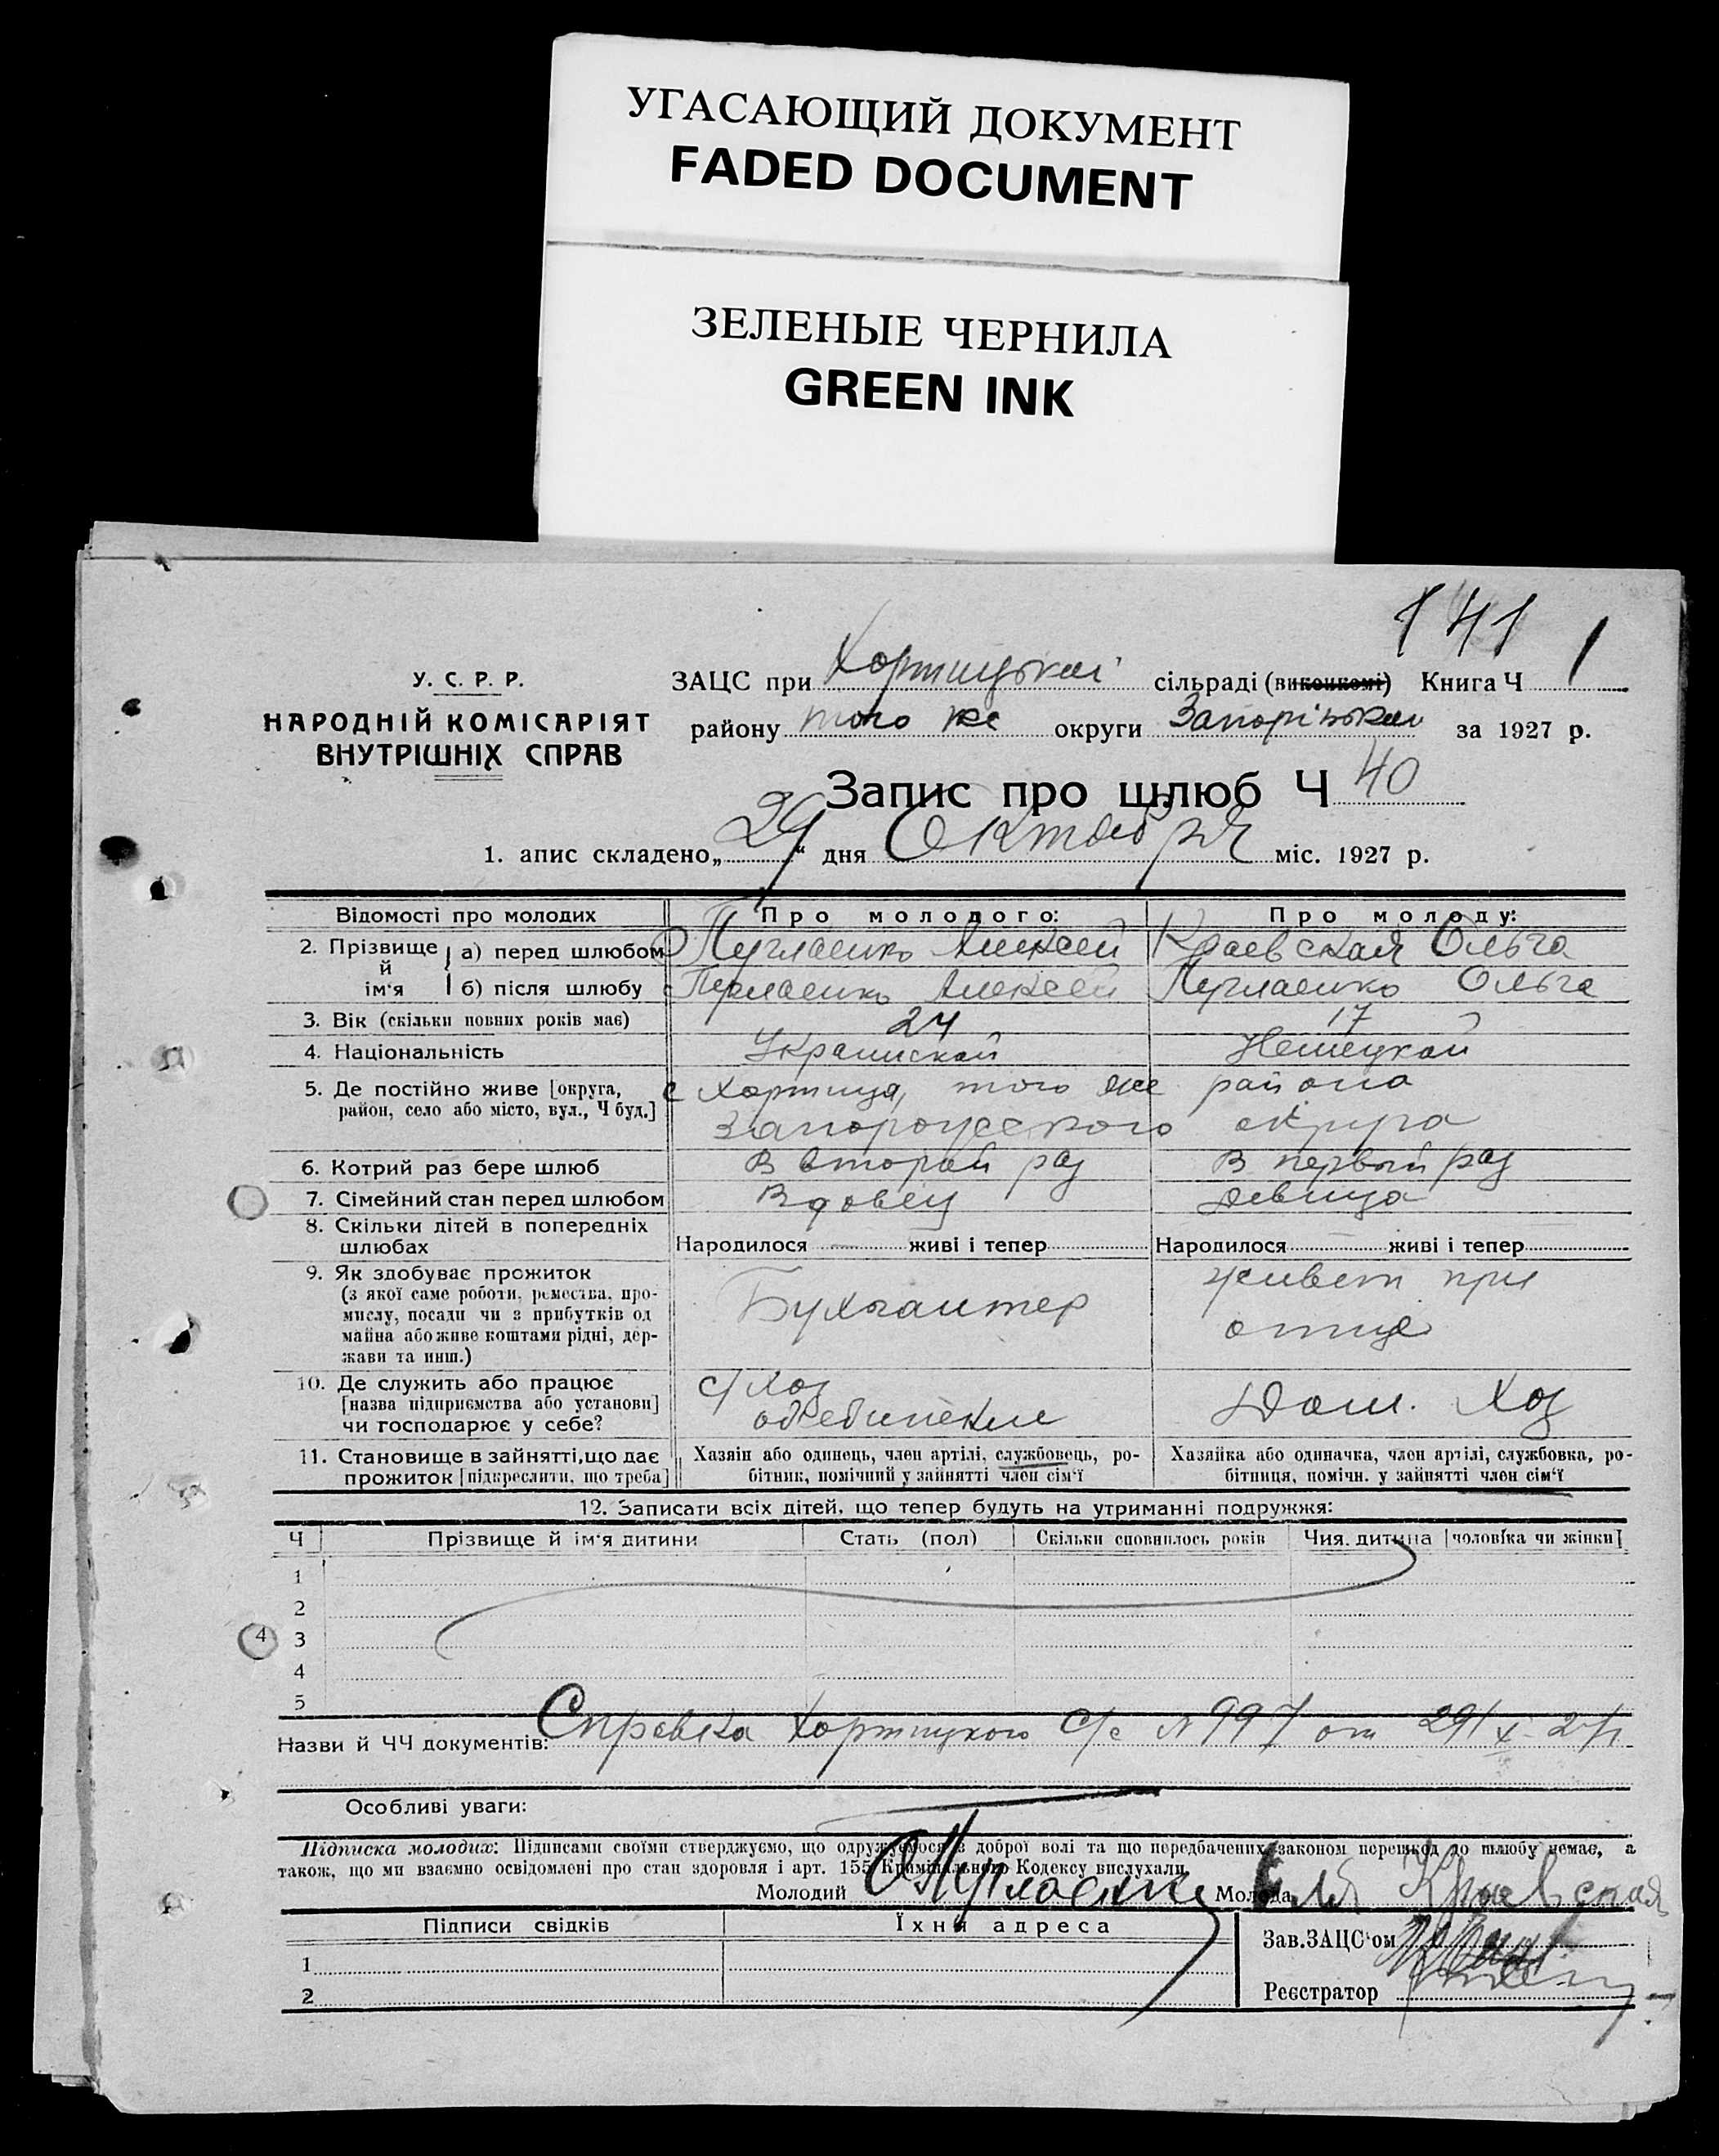 УГАСАЮЩИЙ ДОКУМЕНТ
FADED DOCUMENT
ЗЕЛЕНЫЕ ЧЕРНИЛА
GREEN INK
141
У. С. Р. Р.
НАРОДНІЙ КОМІСАРІЯТ
ВНУТРІШНІХ СПРАВ
ЗАЦС при Хортицькій сільраді (виконкомі) Книга Ч 1
району того же округи Запорізькой за 1927 р.
Запис про шлюб Ч 40
1. апис складено „29“ дня Октября міс. 1927 р.
Відомості про молодих Про молодого: Про молоду:
2. Прізвище й ім'я а) перед шлюбом Алексей Краевская Ольга
б) після шлюбу Алексей Ольга
3. Вік (скільки повних років має) 24 17
4. Національність Украинской Немецкой
5. Де постійно живе [округа, район, село або місто, вул., Ч буд.] с Хортица, того же района
Запорожского округа
6. Котрий раз бере шлюб В второй раз В первый раз
7. Сімейний стан перед шлюбом Вдовец Девица
8. Скільки дітей в попередніх шлюбах Народилося — живі і тепер Народилося — живі і тепер
9. Як здобуває прожиток
(з якої саме роботи, ремества, про-
мислу, посади чи з прибутків од
майна або живе коштами рідні, дер-
жави та инш.)
Бухгалтер
живет при
отце
10. Де служить або працює
[назва підприємства або установи]
чи господарює у себе?
с/хоз
Дом. Хоз
11. Становище в зайнятті, що дає
прожиток [підкреслити, що треба]
Хазяїн або одинець, член артілі, службовець, ро-
бітник, помічний у зайнятті член сім'ї
Хазяйка або одиначка, член артілі, службовка, ро-
бітниця, помічн. у зайнятті член сім'ї
12. Записати всіх дітей, що тепер будуть на утриманні подружжя:
Ч Прізвище й ім'я дитини Стать (пол) Скільки сповнилось років Чия дитина [чоловіка чи жінки]
1
2
4 3
4
5
Назви й ЧЧ документів: Справка Хортицкого С/с № 997 от 29/X-27г
Особливі уваги:
Підписка молодих: Підписами своїми стверджуємо, що одружуємося з доброї волі та що передбачених законом перешкод до шлюбу немає, а
також, що ми взаємно освідомлені про стан здоровля і арт. 155 Кримінального Кодексу вислухали.
Молодий Молода Краевская
Підписи свідків Їхня адреса
Зав. ЗАЦС'ом
1
Реєстратор
2